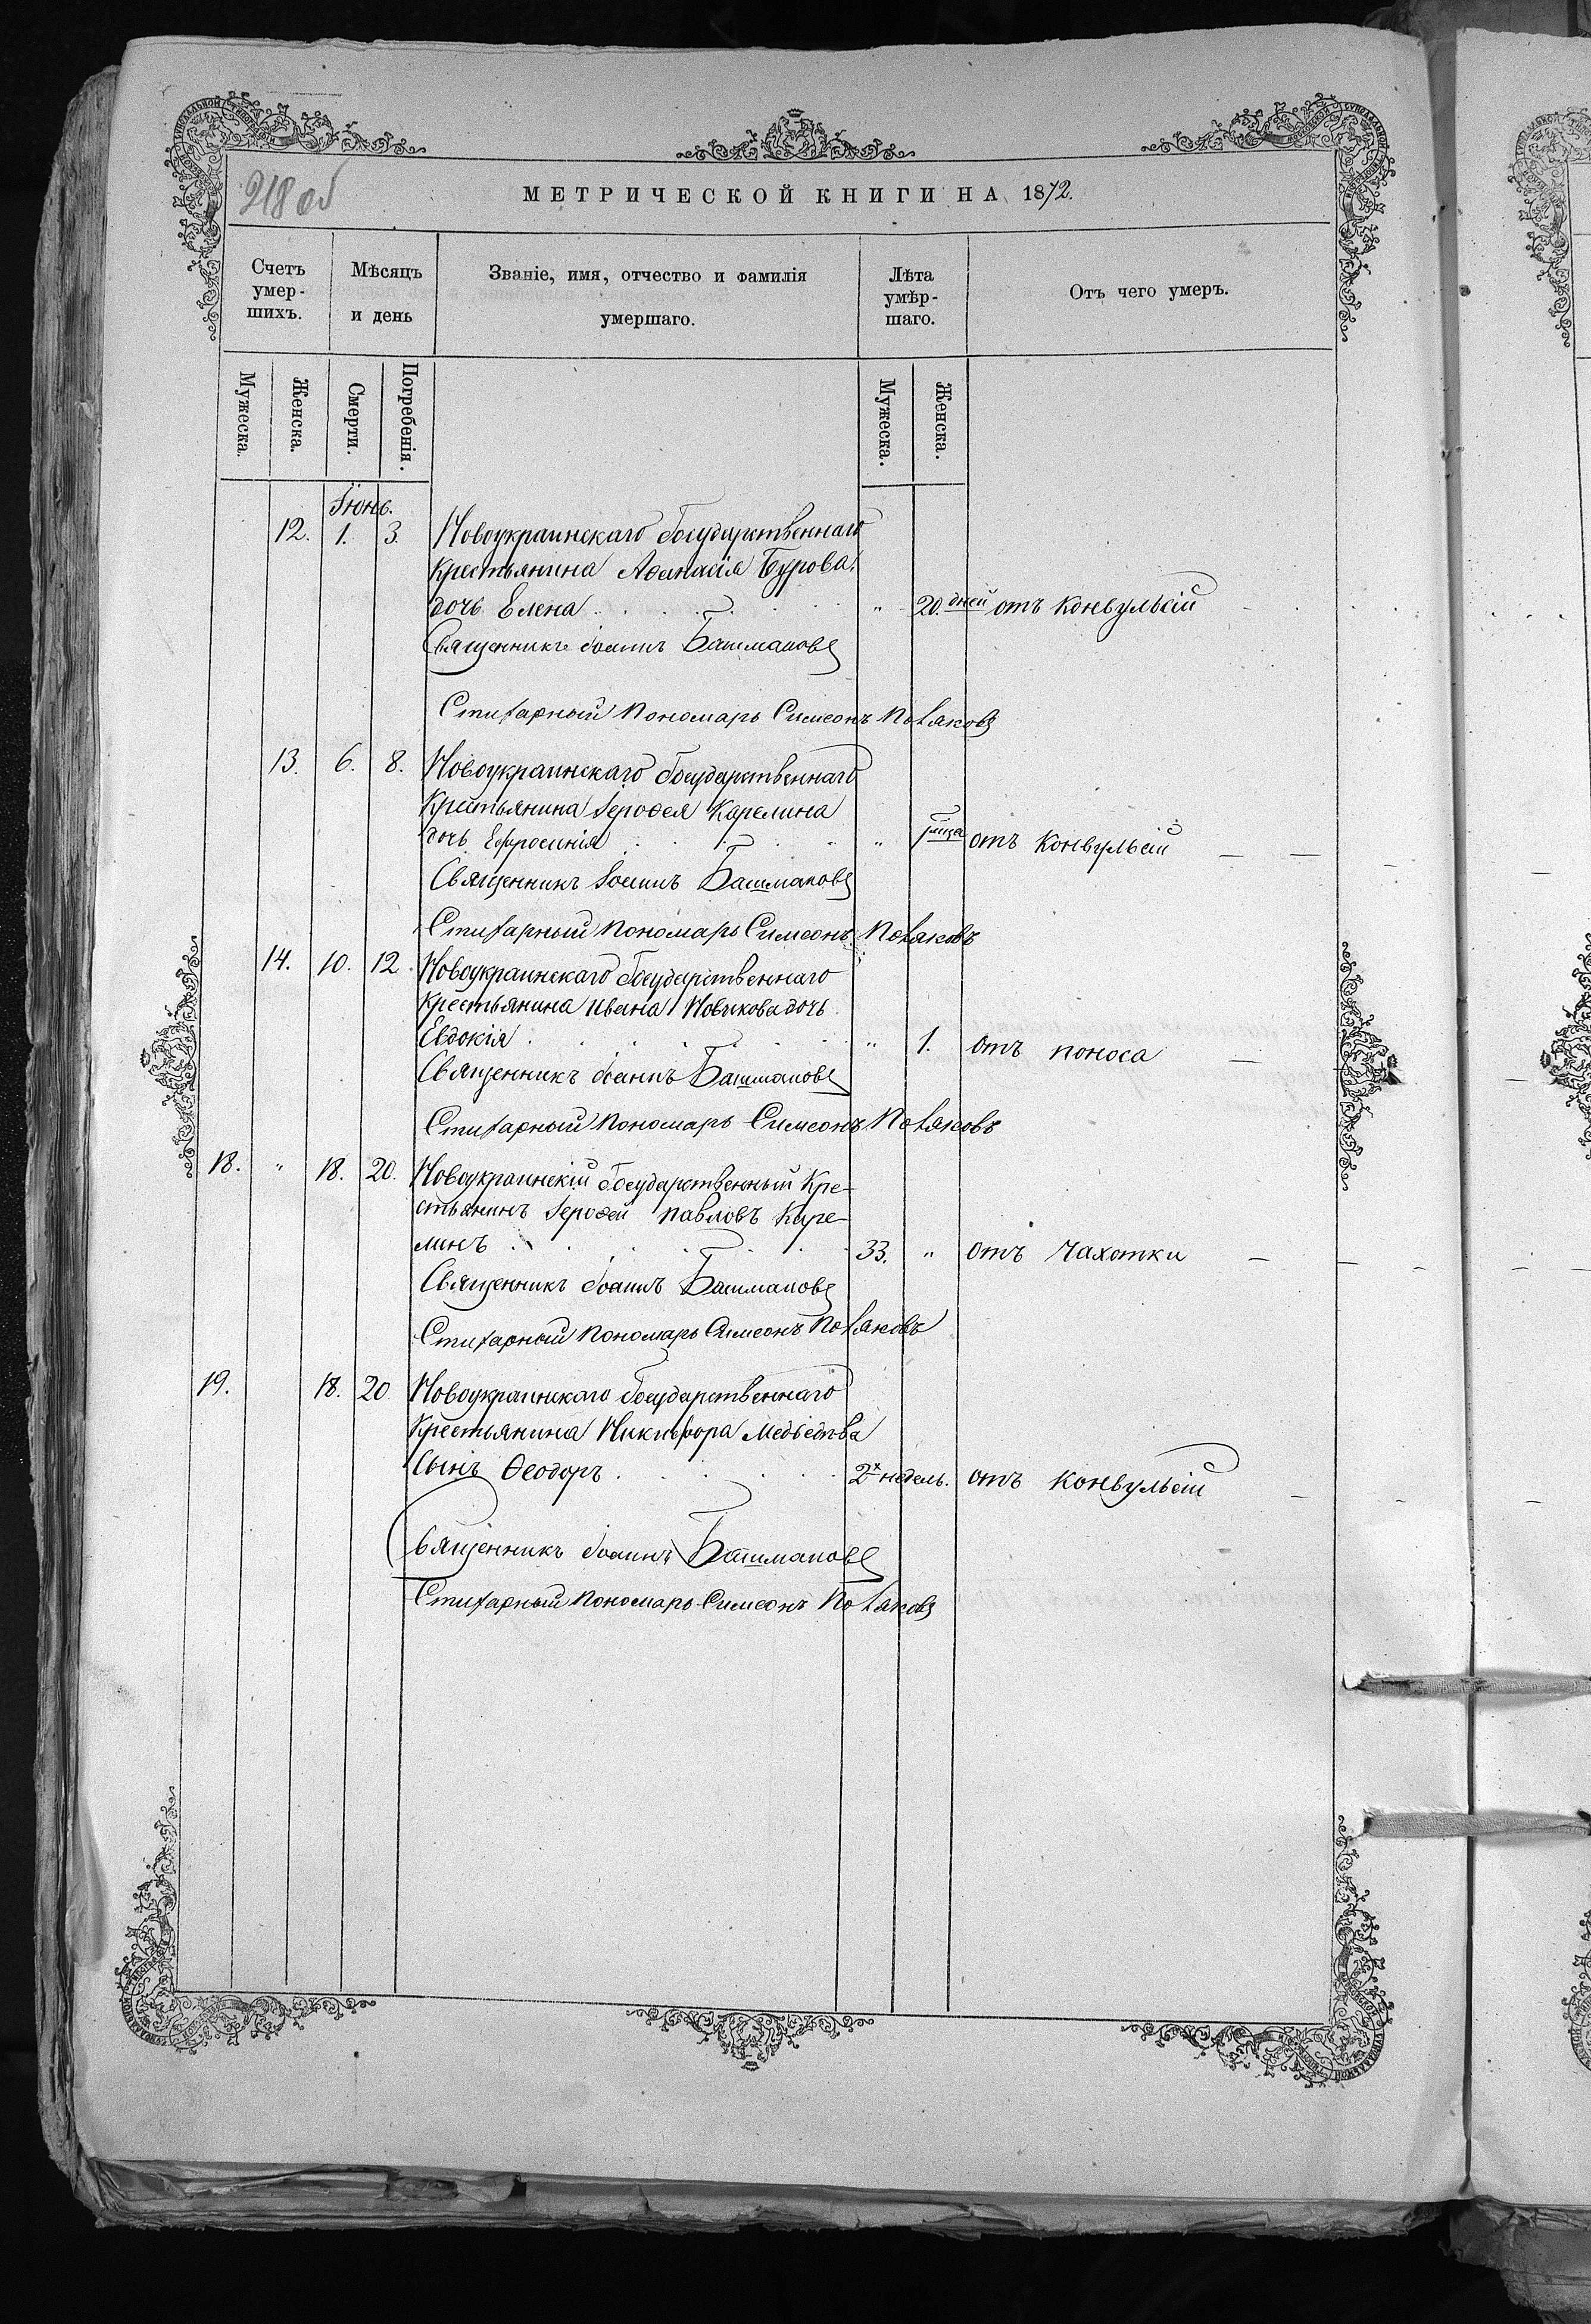 218 об
МЕТРИЧЕСКОЙ КНИГИ НА 1872.
Счетъ умер- шихъ.
Мѣсяцъ и день
Званіе, имя, отчество и фамилія умершаго.
Лѣта умѣр- шаго.
Отъ чего умеръ.
Мужеска.
Женска.
Смерти.
Погребенія.
Мужеска.
Женска.
Іюнь.
12. 1. 3. Новоукраинскаго Государственнаго
Крестьянина Аѳанасія Бурова
дочь Елена . . . . . . " 20. дней отъ конвульсій
Священникъ Іоаннъ Башмаковъ
Стихарный Пономарь Симеонъ Поляковъ
13. 6. 8. Новоукраинскаго Государственнаго
Крестьянина Іероѳея Карелина
дочь Ефросинія . . . . . " отъ Конвульсій — —
Священникъ Іоаннъ Башмаковъ
Стихарный Пономарь Симеонъ Поляковъ
14. 10. 12. Новоукраинскаго Государственнаго
Крестьянина Ивана Новикова дочь
Евдокія . . . . . . " 1. отъ поноса —
Священникъ Іоаннъ Башмаковъ
Стихарный Пономарь Симеонъ Поляковъ
18. " 18. 20. Новоукраинскій Государственный Кре-
стьянинъ Іероѳей Павловъ Каре-
линъ . . . . . . 33. " отъ Чахотки —
Священникъ Іоаннъ Башмаковъ
Стихарный Пономарь Симеонъ Поляковъ
19. 18. 20. Новоукраинскаго Государственнаго
Крестьянина Никифора Медведева
Сынъ Ѳеодоръ . . . . . 2х недель. отъ конвульсій —
Священникъ Іоаннъ Башмаковъ
Стихарный Пономарь Симеонъ Поляковъ